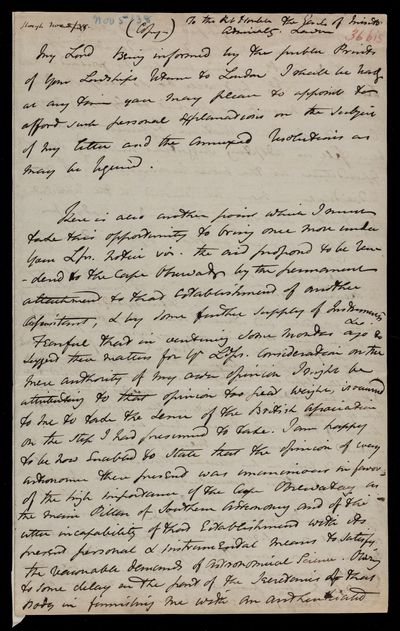 Slough Nov 5/38.
Nov 5 '38
(Copy)
To the Rt Honble the Earl of Minto
Admiralty London
My Lord Being informed by the public Prints
of Your Lordships return to London I shall be
at any time you may please to appoint to
afford such personal explanations on the subject
of my letter and the annexed Resolutions as
may be required.
There is also another point which I must
take this opportunity to bring once more under
Your Ldps. notice viz: the aid proposed to be ren
-dered to the Cape Observatory by the permanent
attachment to that Establishment of another
Assistant, & by some further supply of Instruments
&c.
Fearful that in venturing some months ago to
suggest these matters for Yr Ldps. Consideration on the
mere authority of my own opinion I might be
attributing to that opinion too great weight, it occurred
to me to take the sense of the British Association
on the step I had presumed to take. I am happy
to be now enabled to state that the opinion of every
astronomer there present was unanimous in favour
of the high importance of the Cape Observatory as
the main Pillar of Southern Astronomy and of the
utter incapability of that Establishment with its
present personal & instrumental means to satisfy
the reasonable demands of Astronomical Science. Owing
to some delay on the part of the Secretaries of that
Body in furnishing me with an authenticated